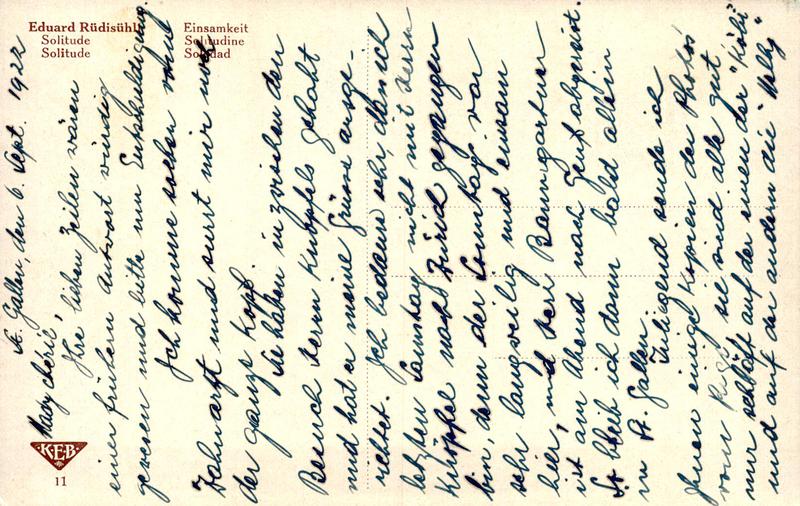 Eduard Rüdisühli
Solitude
Solitude
Einsamkeit
Solitudine
Soledad
St. Gallen, den 6. Sept. 1922
Mary chérie,
Ihre lieben Zeilen wären
einer frühern Antwort würdig
gewesen und bitte um Entschuldigung.
Ich komme soeben vom
Zahnarzt und surrt mir noch
der ganze Kopf.
Sie haben inzwischen den
Besuch Herrn Knöpfels gehabt
und hat er meine Grüsse ausge-
richtet. Ich bedaure sehr, dass ich
letzten Samstag nicht mit Herrn
Knöpfel nach Zürich gegangen
bin, denn der Sonntag war
sehr langweilig und einsam
hier, und Herr Baumgartner
ist am Abend nach Genf abgereist.
So bleib ich dann bald allein
in St. Gallen.
Inliegend sende ich
Ihnen einige Kopien der Photos
vom Rigi, sie sind alle gut
nur schläft auf der einen der "Köbi"
und auf der andern die
KEB
11